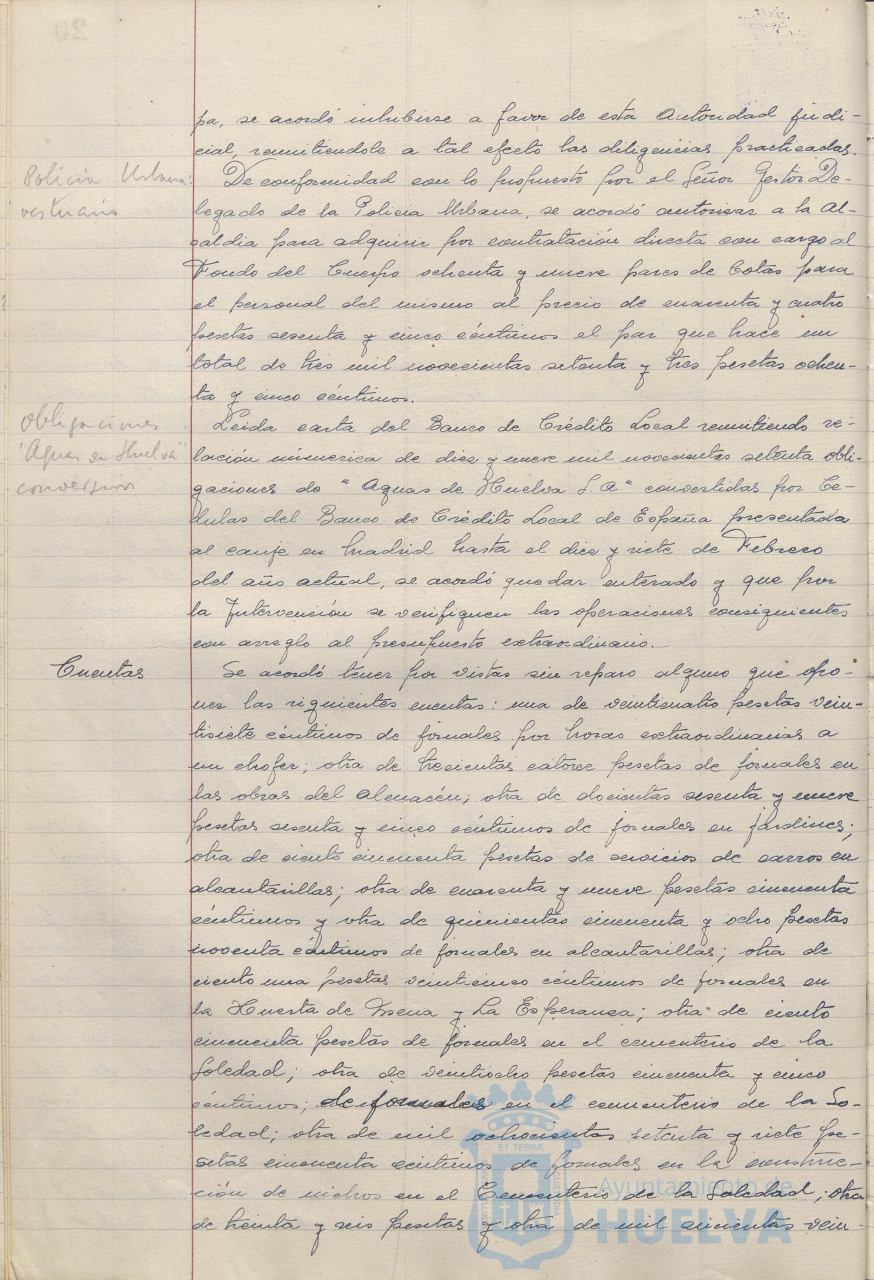 pa, se acordó inhibirse a favor de esta Autoridad judi-
cial, remitiendole a tal efecto las diligencias practicadas.
Policia Urbana:
vestuario
De conformidad con lo propuesto por el Señor Gestor De-
legado de la Policia Urbana, se acordó autorisar a la Al-
caldia para adquirir por contratación directa con cargo al
Fondo del Cuerpo ochenta y nueve pares de botas para
el personal del mismo al precio de cuarenta y cuatro
pesetas sesenta y cinco céntimos el par que hace un
total de tres mil novecientas setenta y tres pesetas ochen-
ta y cinco céntimos.
Obligaciones
"Aguas de Huelva"
conversion
Leida carta del Banco de Crédito Local remitiendo re-
lación númerica de diez y nueve mil novecientas setenta obli-
gaciones de "Aguas de Huelva S.A" convertidas por Ce-
dulas del Banco de Crédito Local de España presentada
al canje en Madrid hasta el diez y siete de Febrero
del año actual, se acordó quedar enterado y que por
la Intervención se verifiquen las operaciones consiguientes
con arreglo al presupuesto extraordinario.
Cuentas
Se acordó tener por vistas sin reparo alguno que opo-
ner las siguientes cuentas: una de veinticuatro pesetas vein-
tisiete céntimos de jornales por horas extraordinarias a
un chofer; otra de trecientas catorce pesetas de jornales en
las obras del Almacén; otra de docientas sesenta y nueve
pesetas sesenta y cinco céntimos de jornales en jardines;
otra de ciento cincuenta pesetas de servicios de carros en
alcantarillas; otra de cuarenta y nueve pesetas cincuenta
céntimos y otra de quinientas cincuenta y ocho pesetas
noventa céntimos de jornales en alcantarillas; otra de
ciento una pesetas veinticinco céntimos de jornales en
la Huerta de Mena y La Esperanza; otra de ciento
cincuenta pesetas de jornales en el cementerio de la
Soledad; otra de veintiocho pesetas cincuenta y cinco
céntimos; de jornales en el cementerio de la So-
ledad; otra de mil ochocientas setenta y siete pe-
setas cincuenta céntimos de jornales en la construc-
ción de nichos en el Cementerio de la Soledad; otra
de treinta y seis pesetas y otra de mil quinientas vein-
ET TERRÆ
Ayuntamiento de
HUELVA